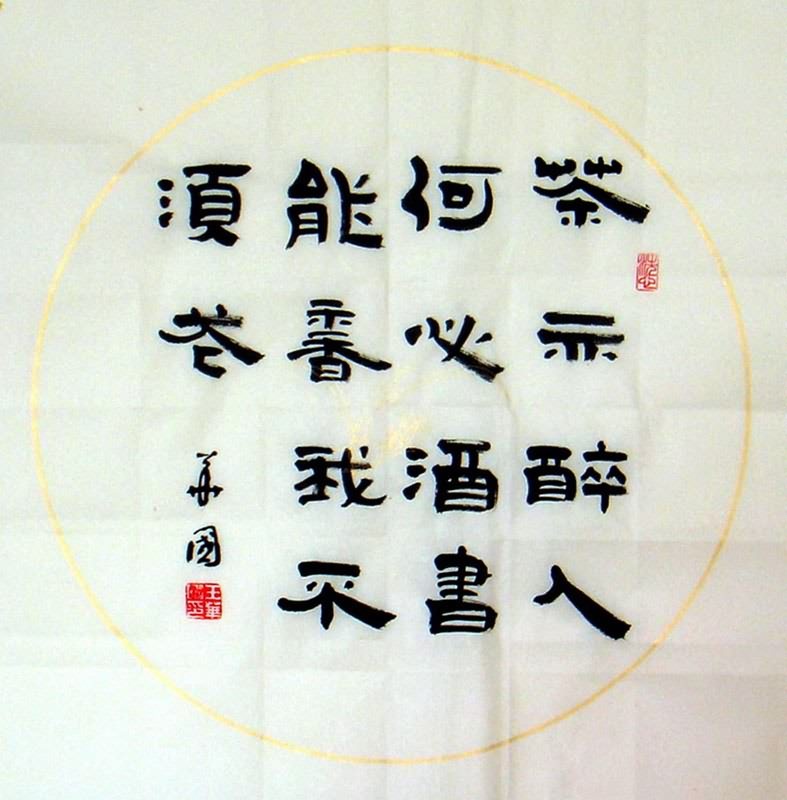 茶亦醉人
何必酒書
能香我不
須花
華國
王華國印